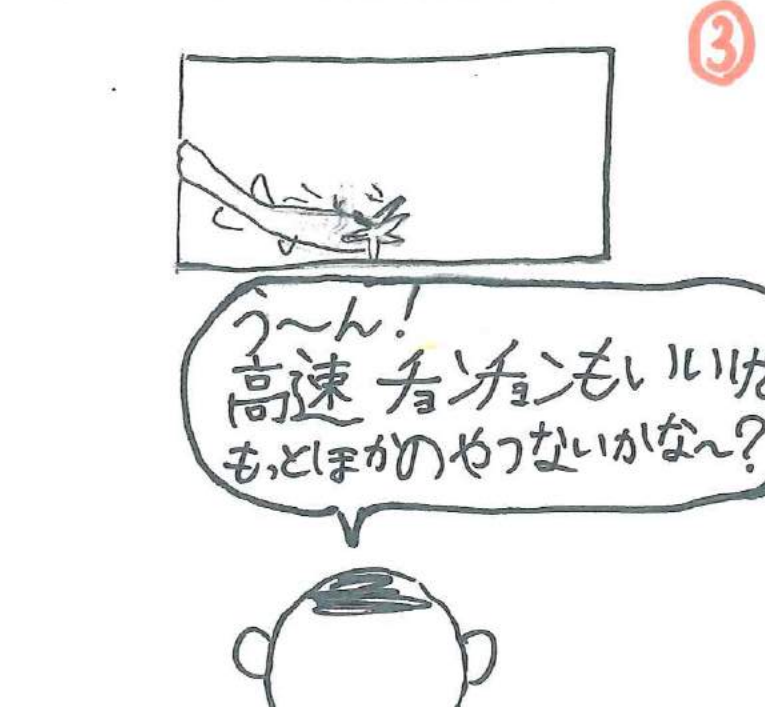 ③
う〜ん!
高速チョンチョンもいいけ
もっとほかのやつないかな〜?